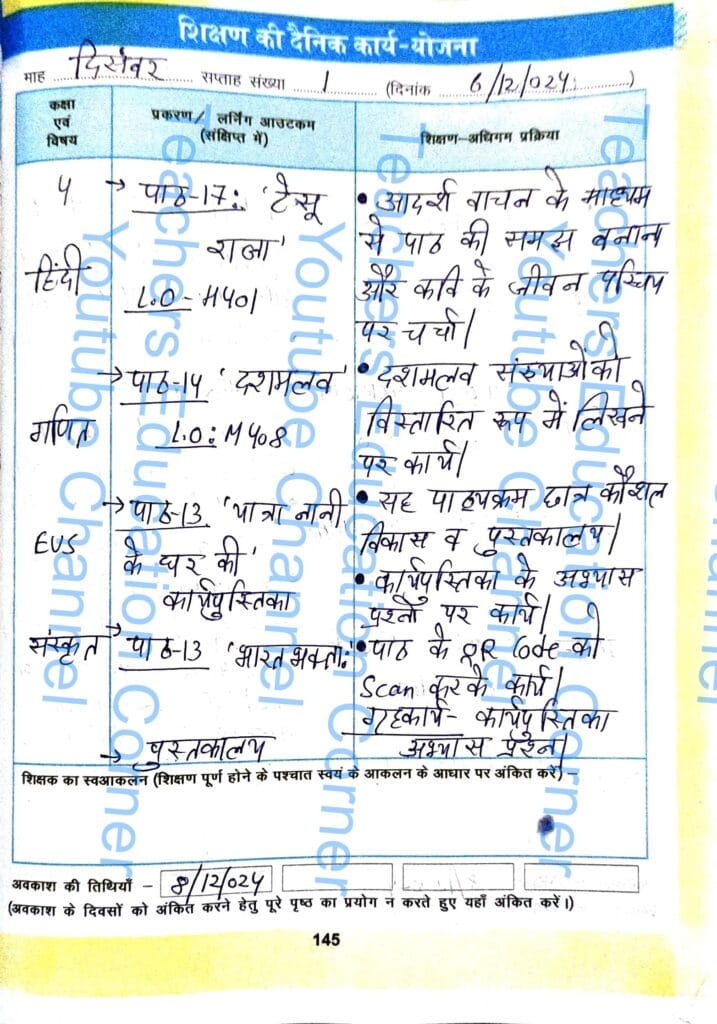 शिक्षण की दैनिक कार्य-योजना
माह दिसंबर सप्ताह संख्या 1 (दिनांक 6/12/024)
कक्षा एवं विषय
प्रकरण/ लर्निंग आउटकम (संक्षिप्त में)
शिक्षण-अधिगम प्रक्रिया
4
हिंदी
→ पाठ-17: 'टेसू
राजा'
L.O-H401
• आदर्श वाचन के माध्यम
से पाठ की समझ बनाना
और कवि के जीवन परिचय
पर चर्चा।
गणित
→ पाठ-14 'दशमलव'
L.O: M408
• दशमलव संख्याओं को
विस्तारित रूप में लिखने
पर कार्य।
EVS
→ पाठ-13 'यात्रा नानी
के घर की'
कार्यपुस्तिका
• सह पाठ्यक्रम छात्र कौशल
विकास व पुस्तकालय।
• कार्यपुस्तिका के अभ्यास
प्रश्नों पर कार्य।
संस्कृत
→ पाठ-13 'भारतभक्ताः'
• पाठ के QR Code को
Scan करके कार्य।
गृहकार्य- कार्यपुस्तिका
अभ्यास प्रश्न।
→ पुस्तकालय
शिक्षक का स्वआकलन (शिक्षण पूर्ण होने के पश्चात स्वयं के आकलन के आधार पर अंकित करें) –
अवकाश की तिथियाँ – 8/12/024
(अवकाश के दिवसों को अंकित करने हेतु पूरे पृष्ठ का प्रयोग न करते हुए यहाँ अंकित करें।)
145
Teachers Education Corner
Youtube Channel
Teachers Education Corner
Youtube Channel
Teachers Education Corner
Youtube Channel